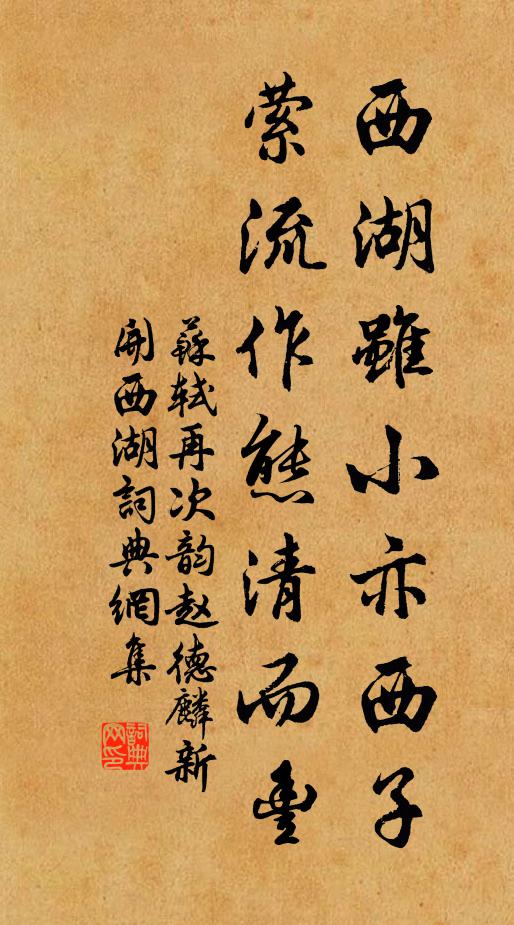 西湖雖小亦西子
萦流作態清而豐
蘇軾再次韵赵德麟新
開西湖詞典網集
詞典
网印